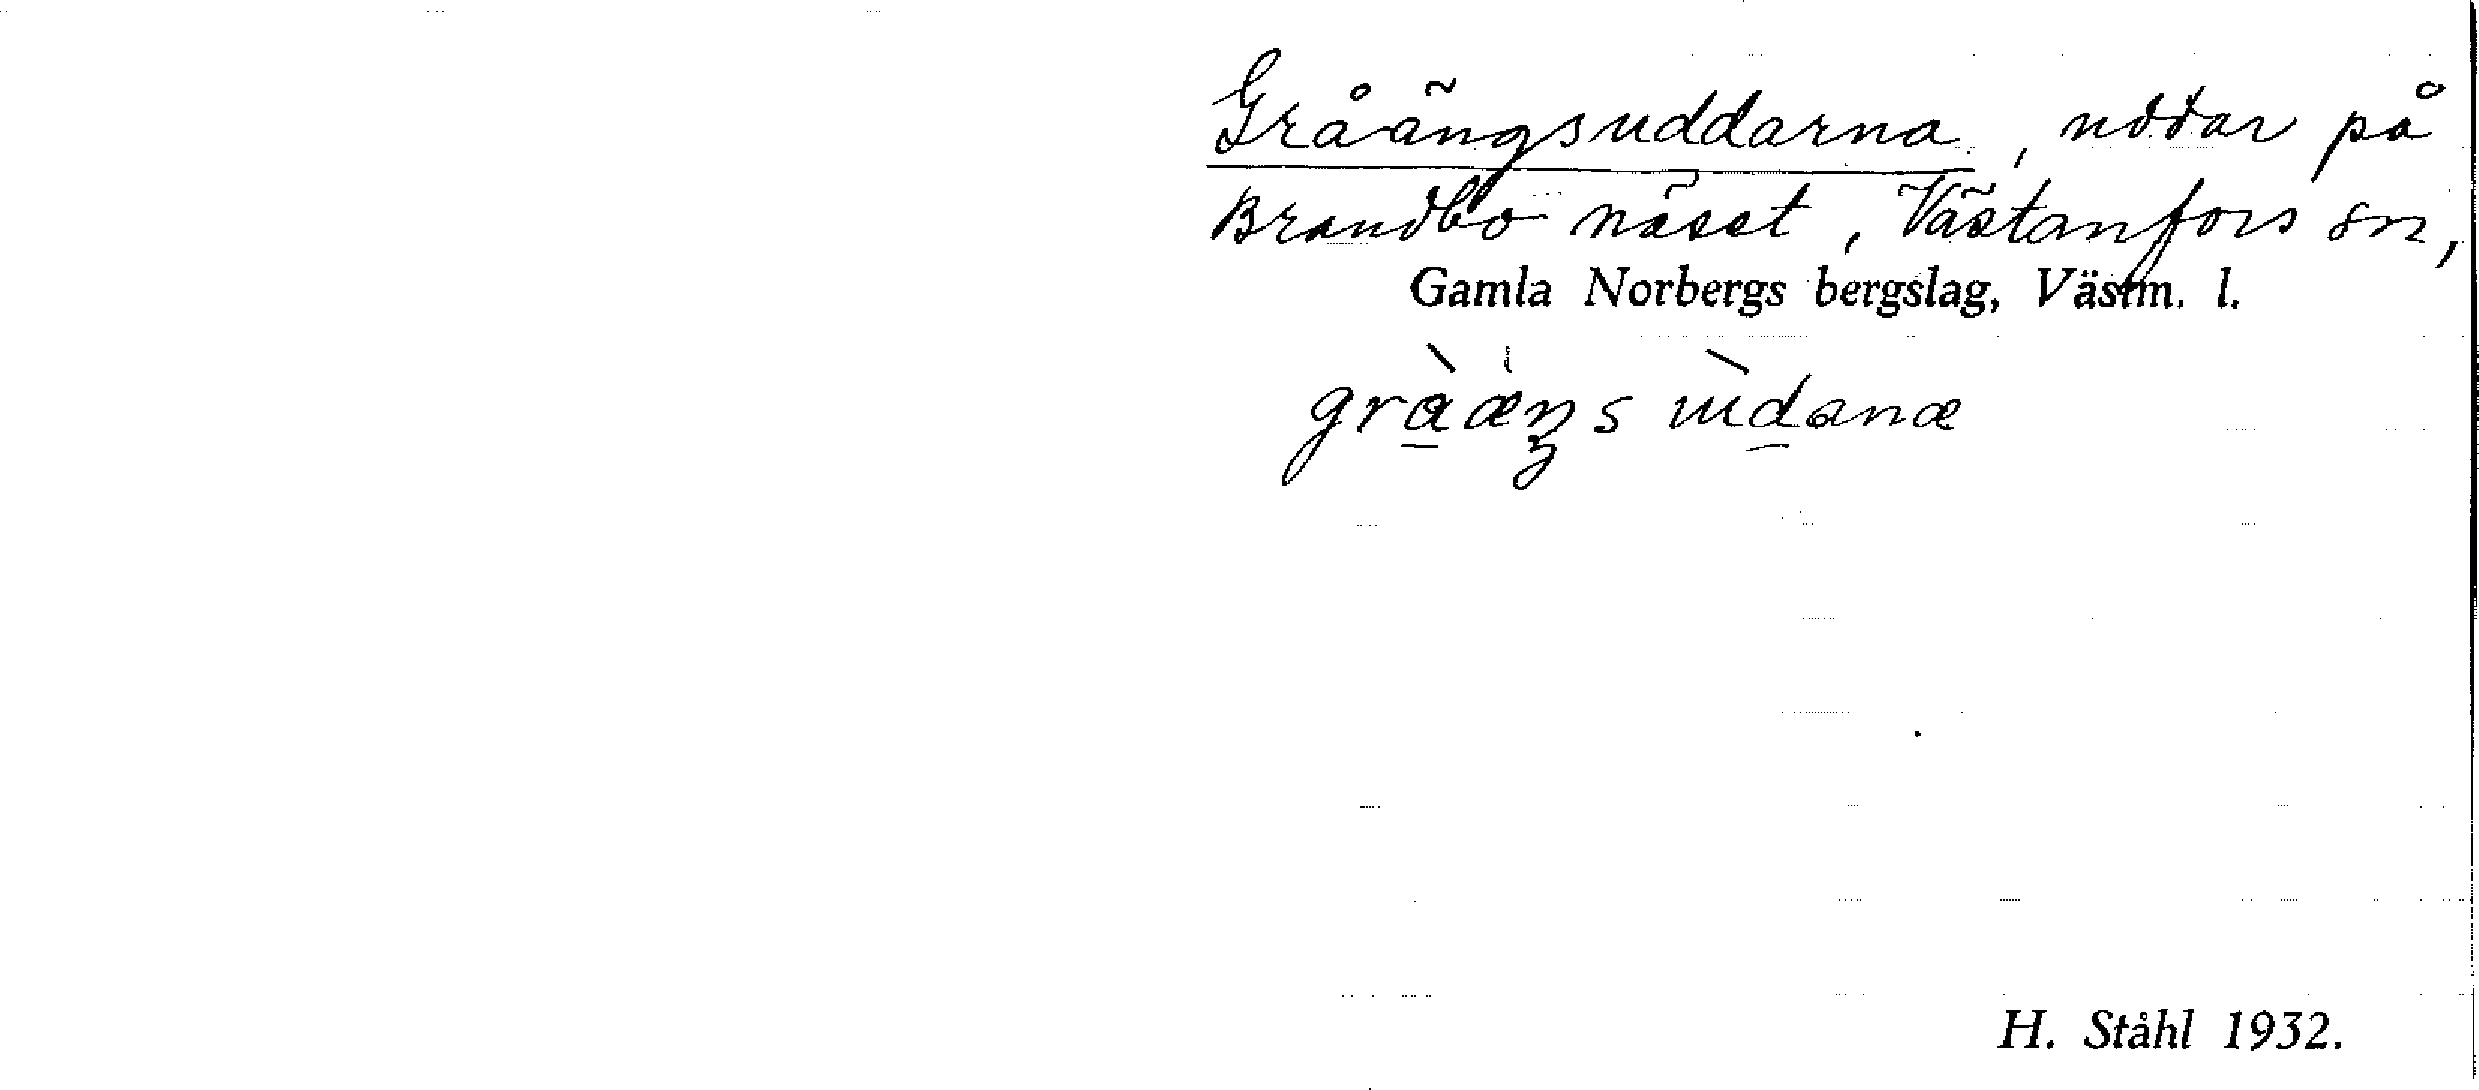 Gråängsuddarna, uddar på
Brandbo näset, Västanfors sn,
Gamla Norbergs bergslag, Västm. l.
H. Ståhl 1932.